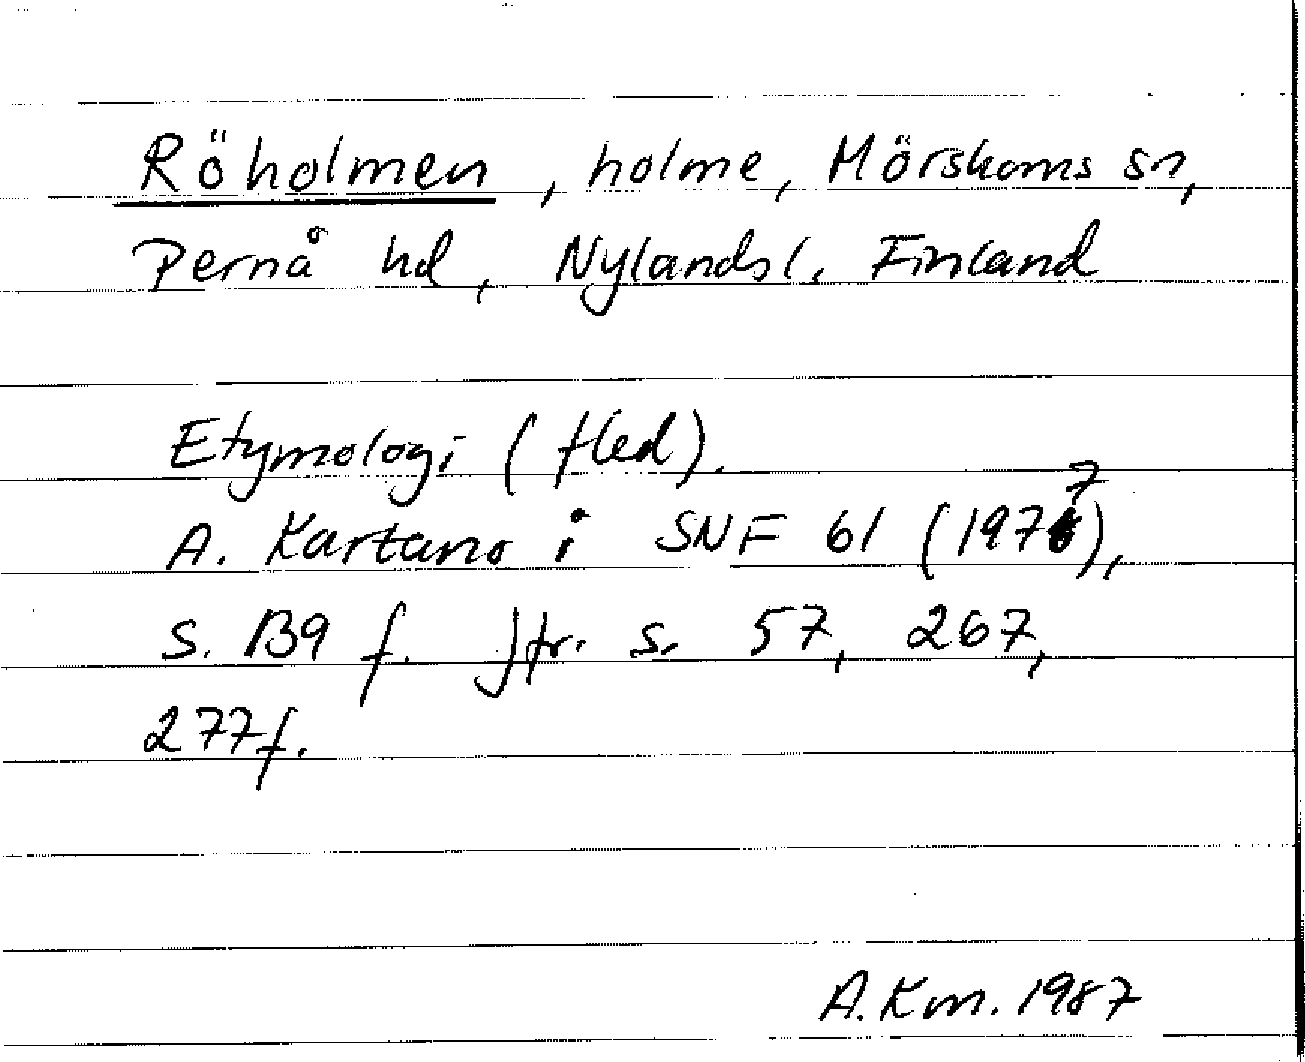 Röholmen, holme, Mörskoms sn,
Pernå hd, Nylandsl. Finland
Etymologi (fled).
A. Kartano i SNF 61 (1977),
s. 139 f. Jfr. s. 57, 267,
277f.
A.Km. 1987